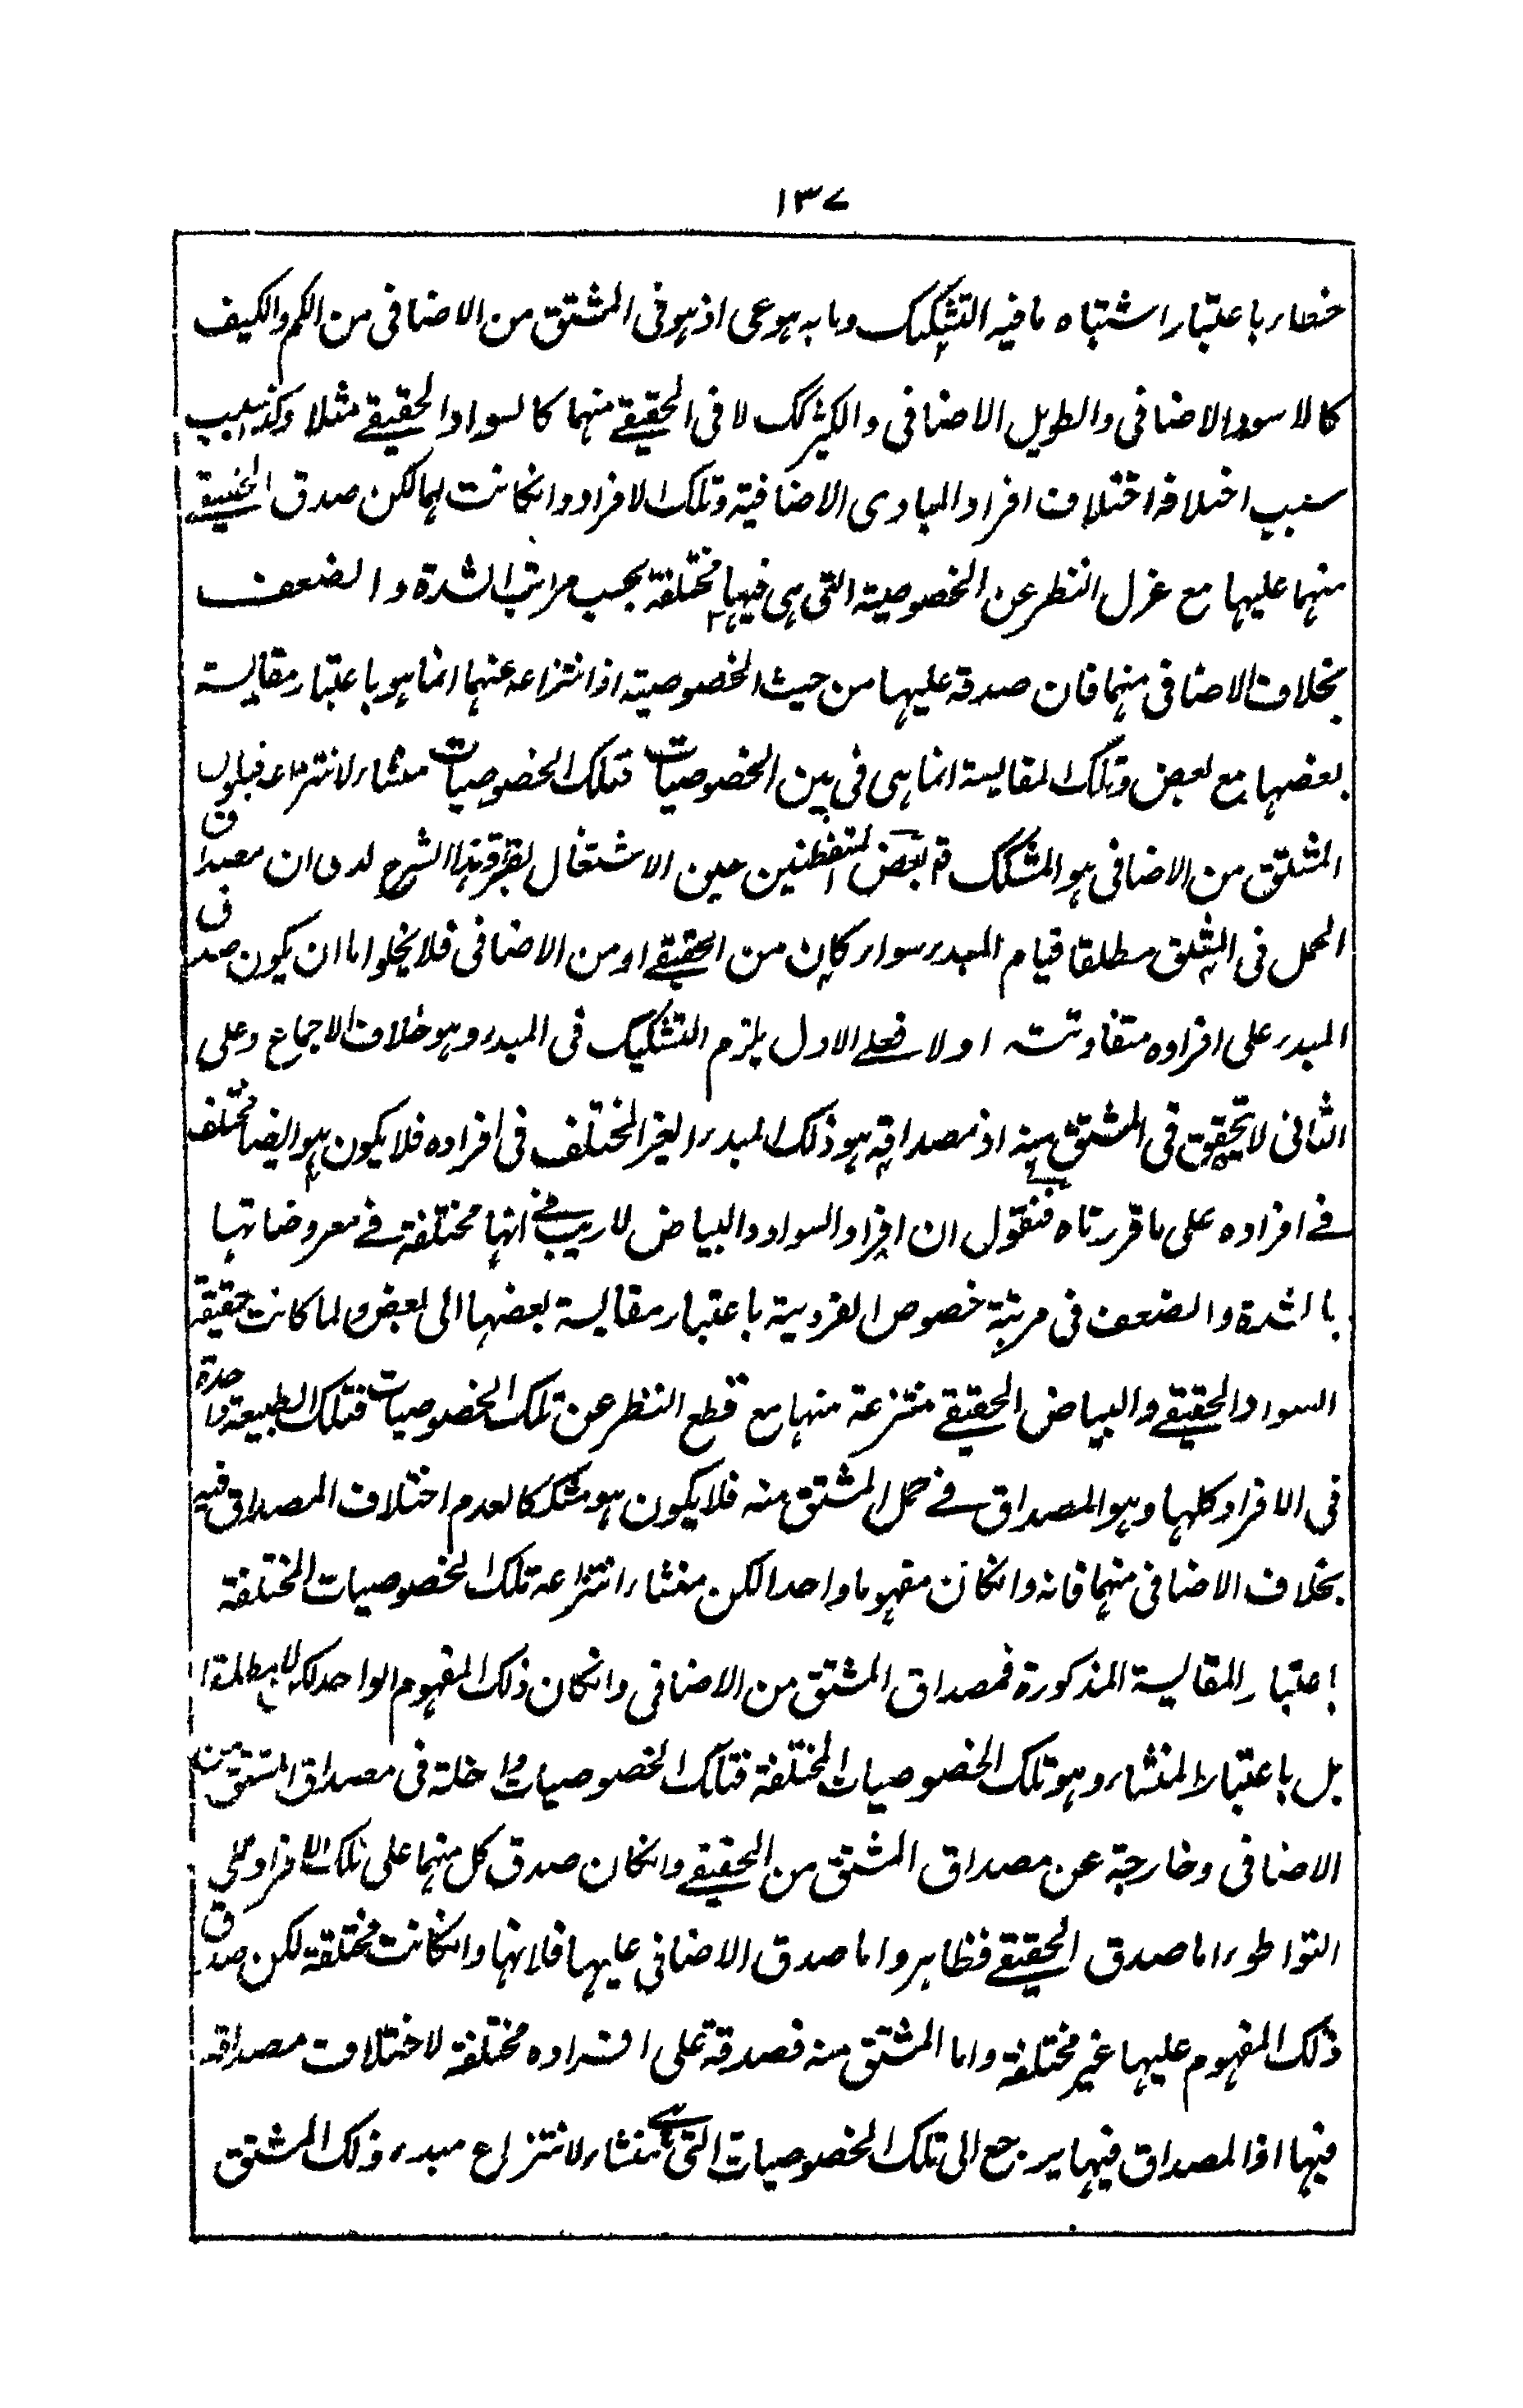 ١٣٧
خطاء باعتبار اشتباه ما فيه التشكيك وما به هو عى اذ هو فى المشتق من الاضافى من الكم والكيف
كالاسود الاضافى والطويل الاضافى والكثير كك لا فى الحقيقے منهما كالسواد الحقيقے مثلا وكذ
سبب اختلافه اختلاف افراد المبادى الاضافية وتلك الافراد وانكانت لهما لكن صدق الحقيقے
منهما عليها مع عزل النظر عن الخصوصية التى هى فيها مختلفة بحسب مراتب الشدة والضعف
بخلاف الاضافى منهما فان صدقه عليها من حيث الخصوصية اذ انتزاعه عنهما انما هو باعتبار مقايسة
بعضها مع بعض وتلك المقايسة انما هى فى بين الخصوصيات فتلك الخصوصيات منشاء لانتزاعه فيكون
المشتق من الاضافى هو المشكك قو بعض المتفطنين حين الاشتغال بقراءة هذا الشرح لدى ان مصداق
الحمل فى المشتق مطلقا قيام المبدء سواء كان من الحقيقے او من الاضافى فلا يخلو اما ان يكون صدق
المبدء على افراده متفاوتة اولا فعلے الاول يلزم التشكيك فى المبدء وهو خلاف الاجماع وعلى
الثانى لا تحقق فى المشتق منه اذ مصداقه هو ذلك المبدء الغير المختلف فى افراده فلا يكون هو ايضا مختلف
فے افراده على ما قررتاه فنقول ان افراد السواد والبياض لا ريب فے انها مختلفة فے معروضاتها
بالشدة والضعف فى مرتبة خصوص الفردية باعتبار مقايسة بعضها الى بعض ولما كانت حقيقة
السواد الحقيقے والبياض الحقيقے منتزعة منها مع قطع النظر عن تلك الخصوصيات فتلك الطبيعة واحدة
فى الافراد كلها وهو المصداق فے حمل المشتق منه فلا يكون هو مشككا لعدم اختلاف المصداق فيه
بخلاف الاضافى منهما فانه وانكان مفهوما واحدا لكن منشاء انتزاعه تلك الخصوصيات المختلفة
باعتبار المقايسة المذكورة فمصداق المشتق من الاضافى وانكان ذلك المفهوم الواحد لكن لا مطلقا
بل باعتبار المنشاء وهو تلك الخصوصيات المختلفة فتلك الخصوصيات داخلة فى مصداق المشتق من
الاضافى وخارجة عن مصداق المشتق من الحقيقے وانكان صدق كل منهما على تلك الافراد على
التواطوء اما صدق الحقيقے فظاهر واما صدق الاضافى عليها فلانها وانكانت مختلفة لكن صدق
ذلك المفهوم عليها غير مختلفة واما المشتق منه فصدقه على افراده مختلفة لاختلاف مصداقه
فيها اذ المصداق فيها يرجع الى تلك الخصوصيات التى هے منشاء لانتزاع مبدء ذلك المشتق